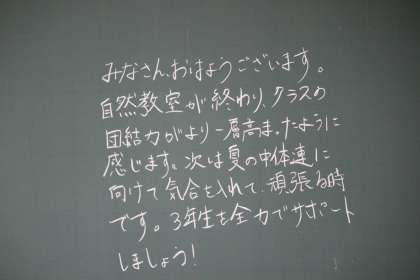 みなさん、おはようございます。
自然教室が終わり、クラスの
団結力がより一層高まったように
感じます。次は夏の中体連に
向けて気合を入れて、頑張る時
です。3年生を全力でサポート
しましょう!